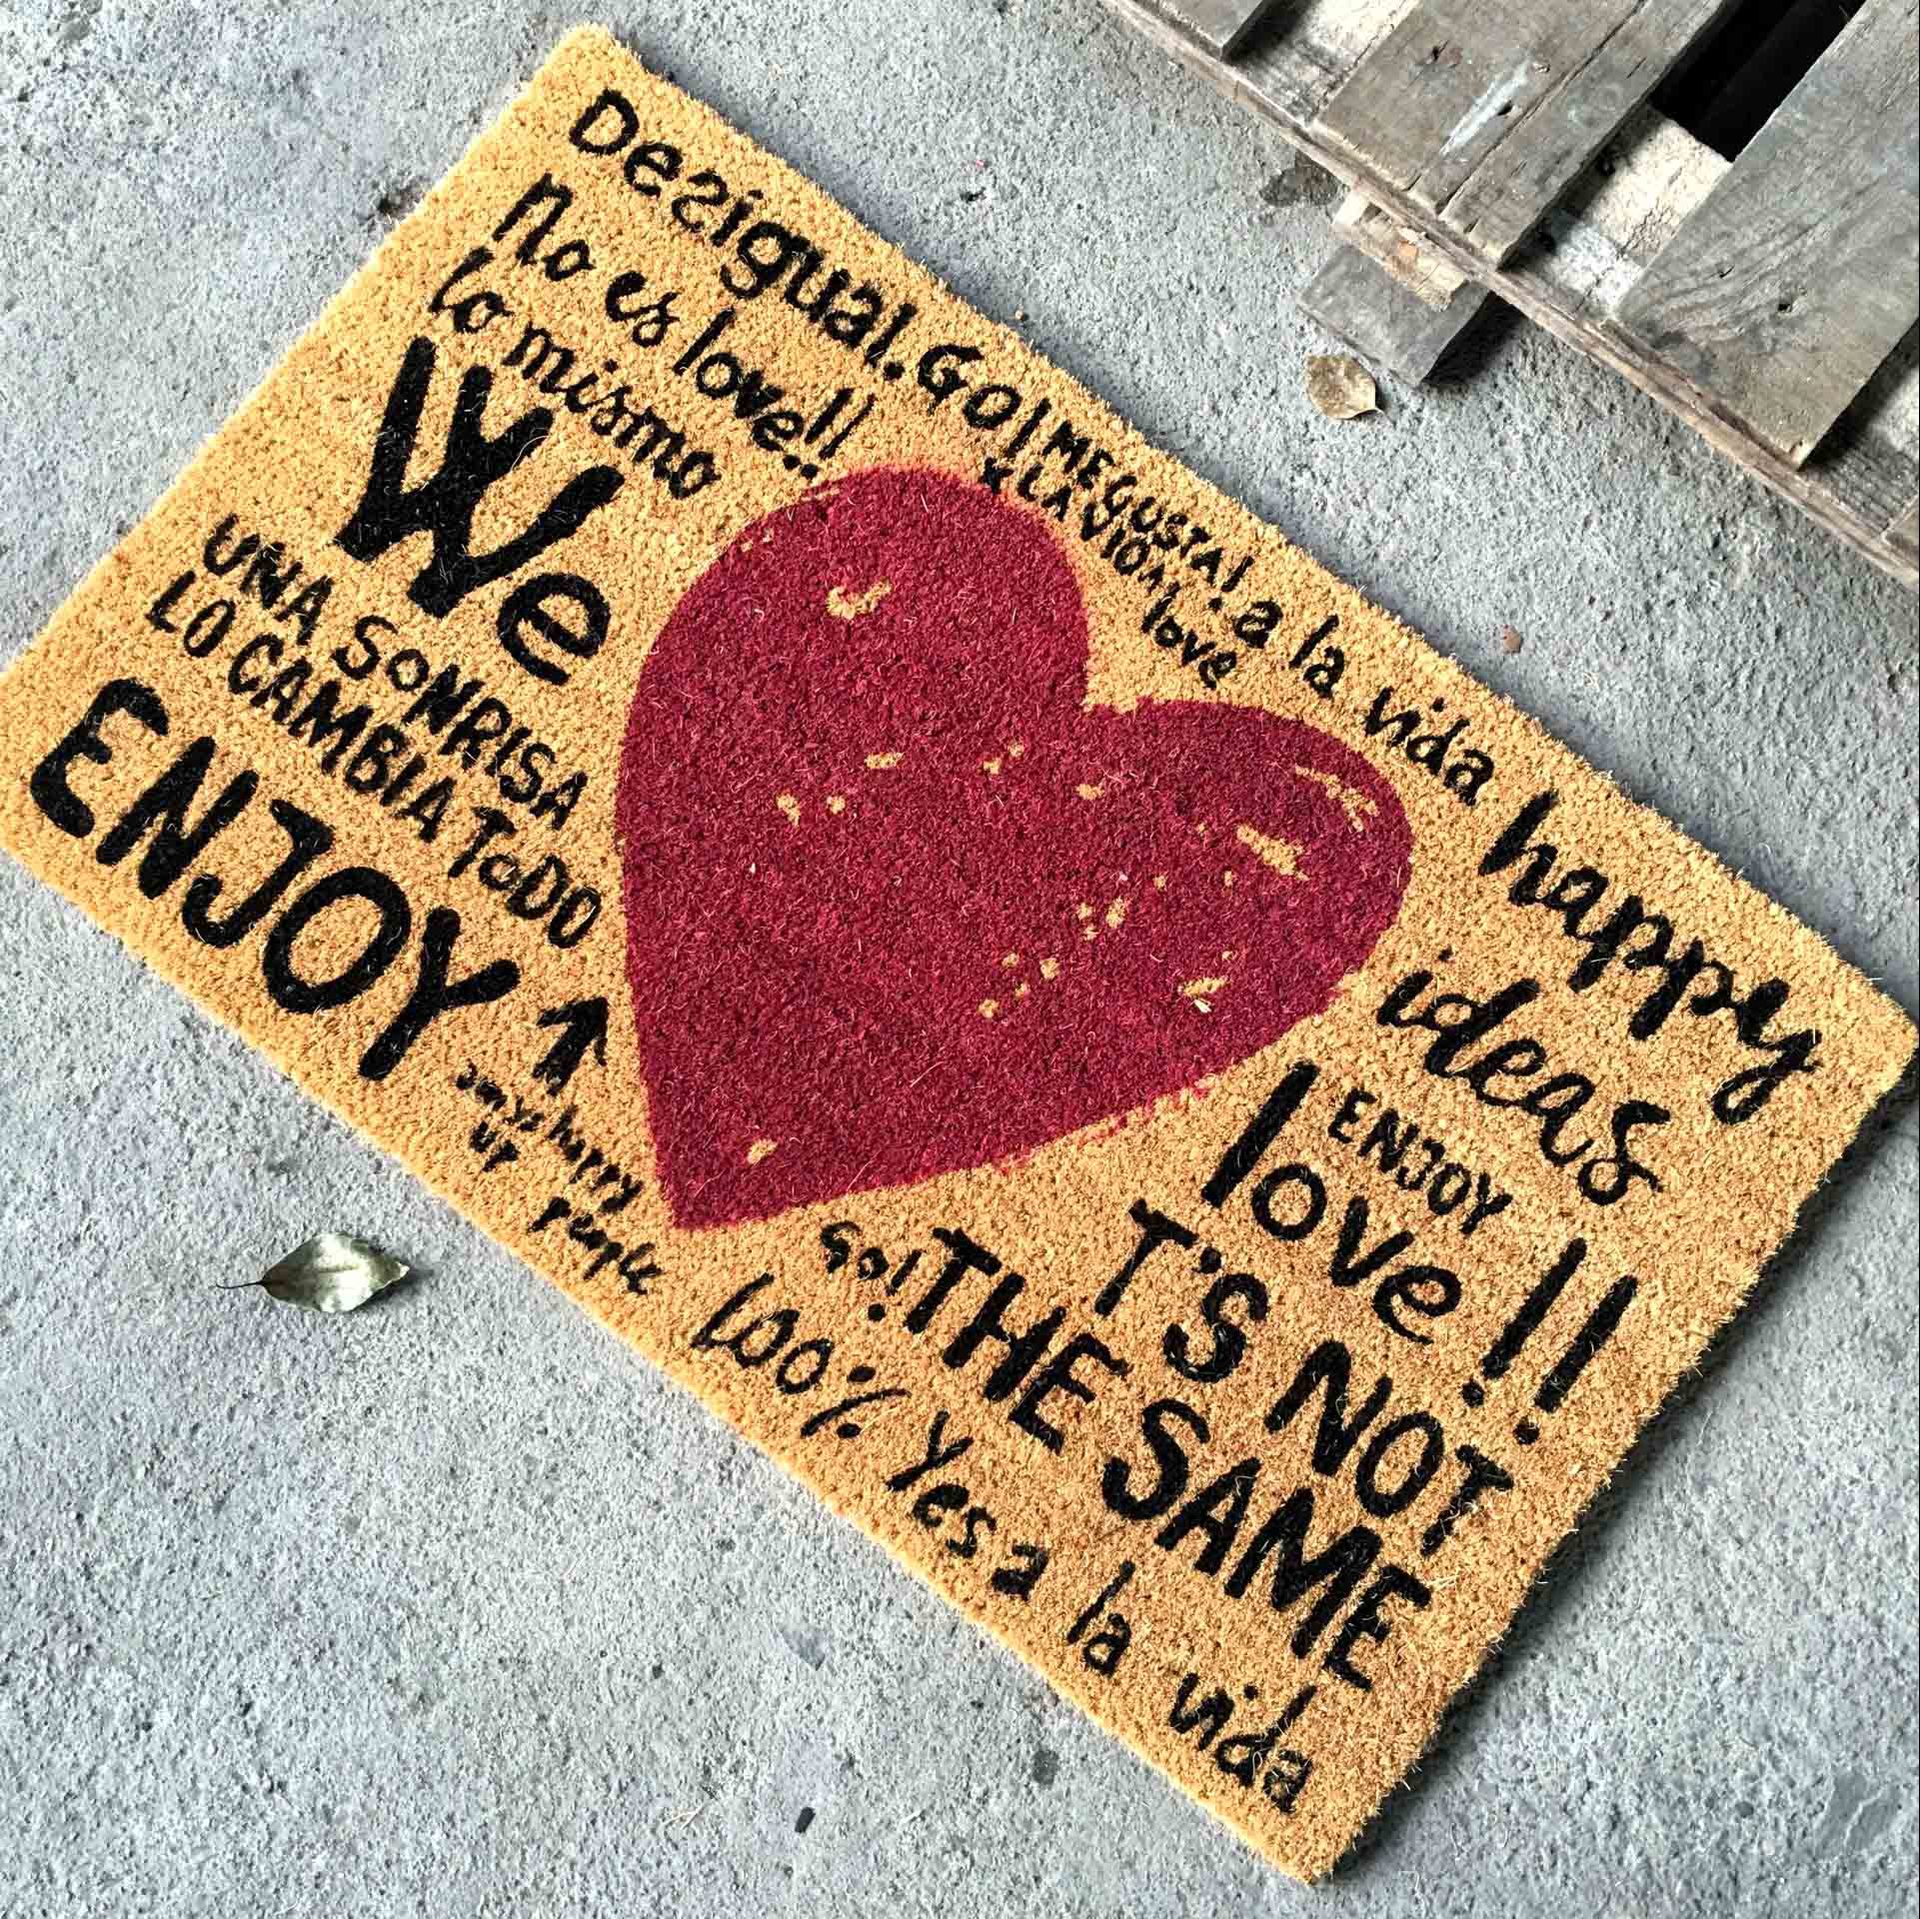 Desigual. GO! ME GUSTA! a la vida
No es love!!
lo mismo
X LA
love
We
UNA SONRISA
LO CAMBIA TODO
ENJOY
happy
UP
people
happy
ideas
ENJOY
love!!
T'S NOT
GO! THE SAME
100% Yes a la vida